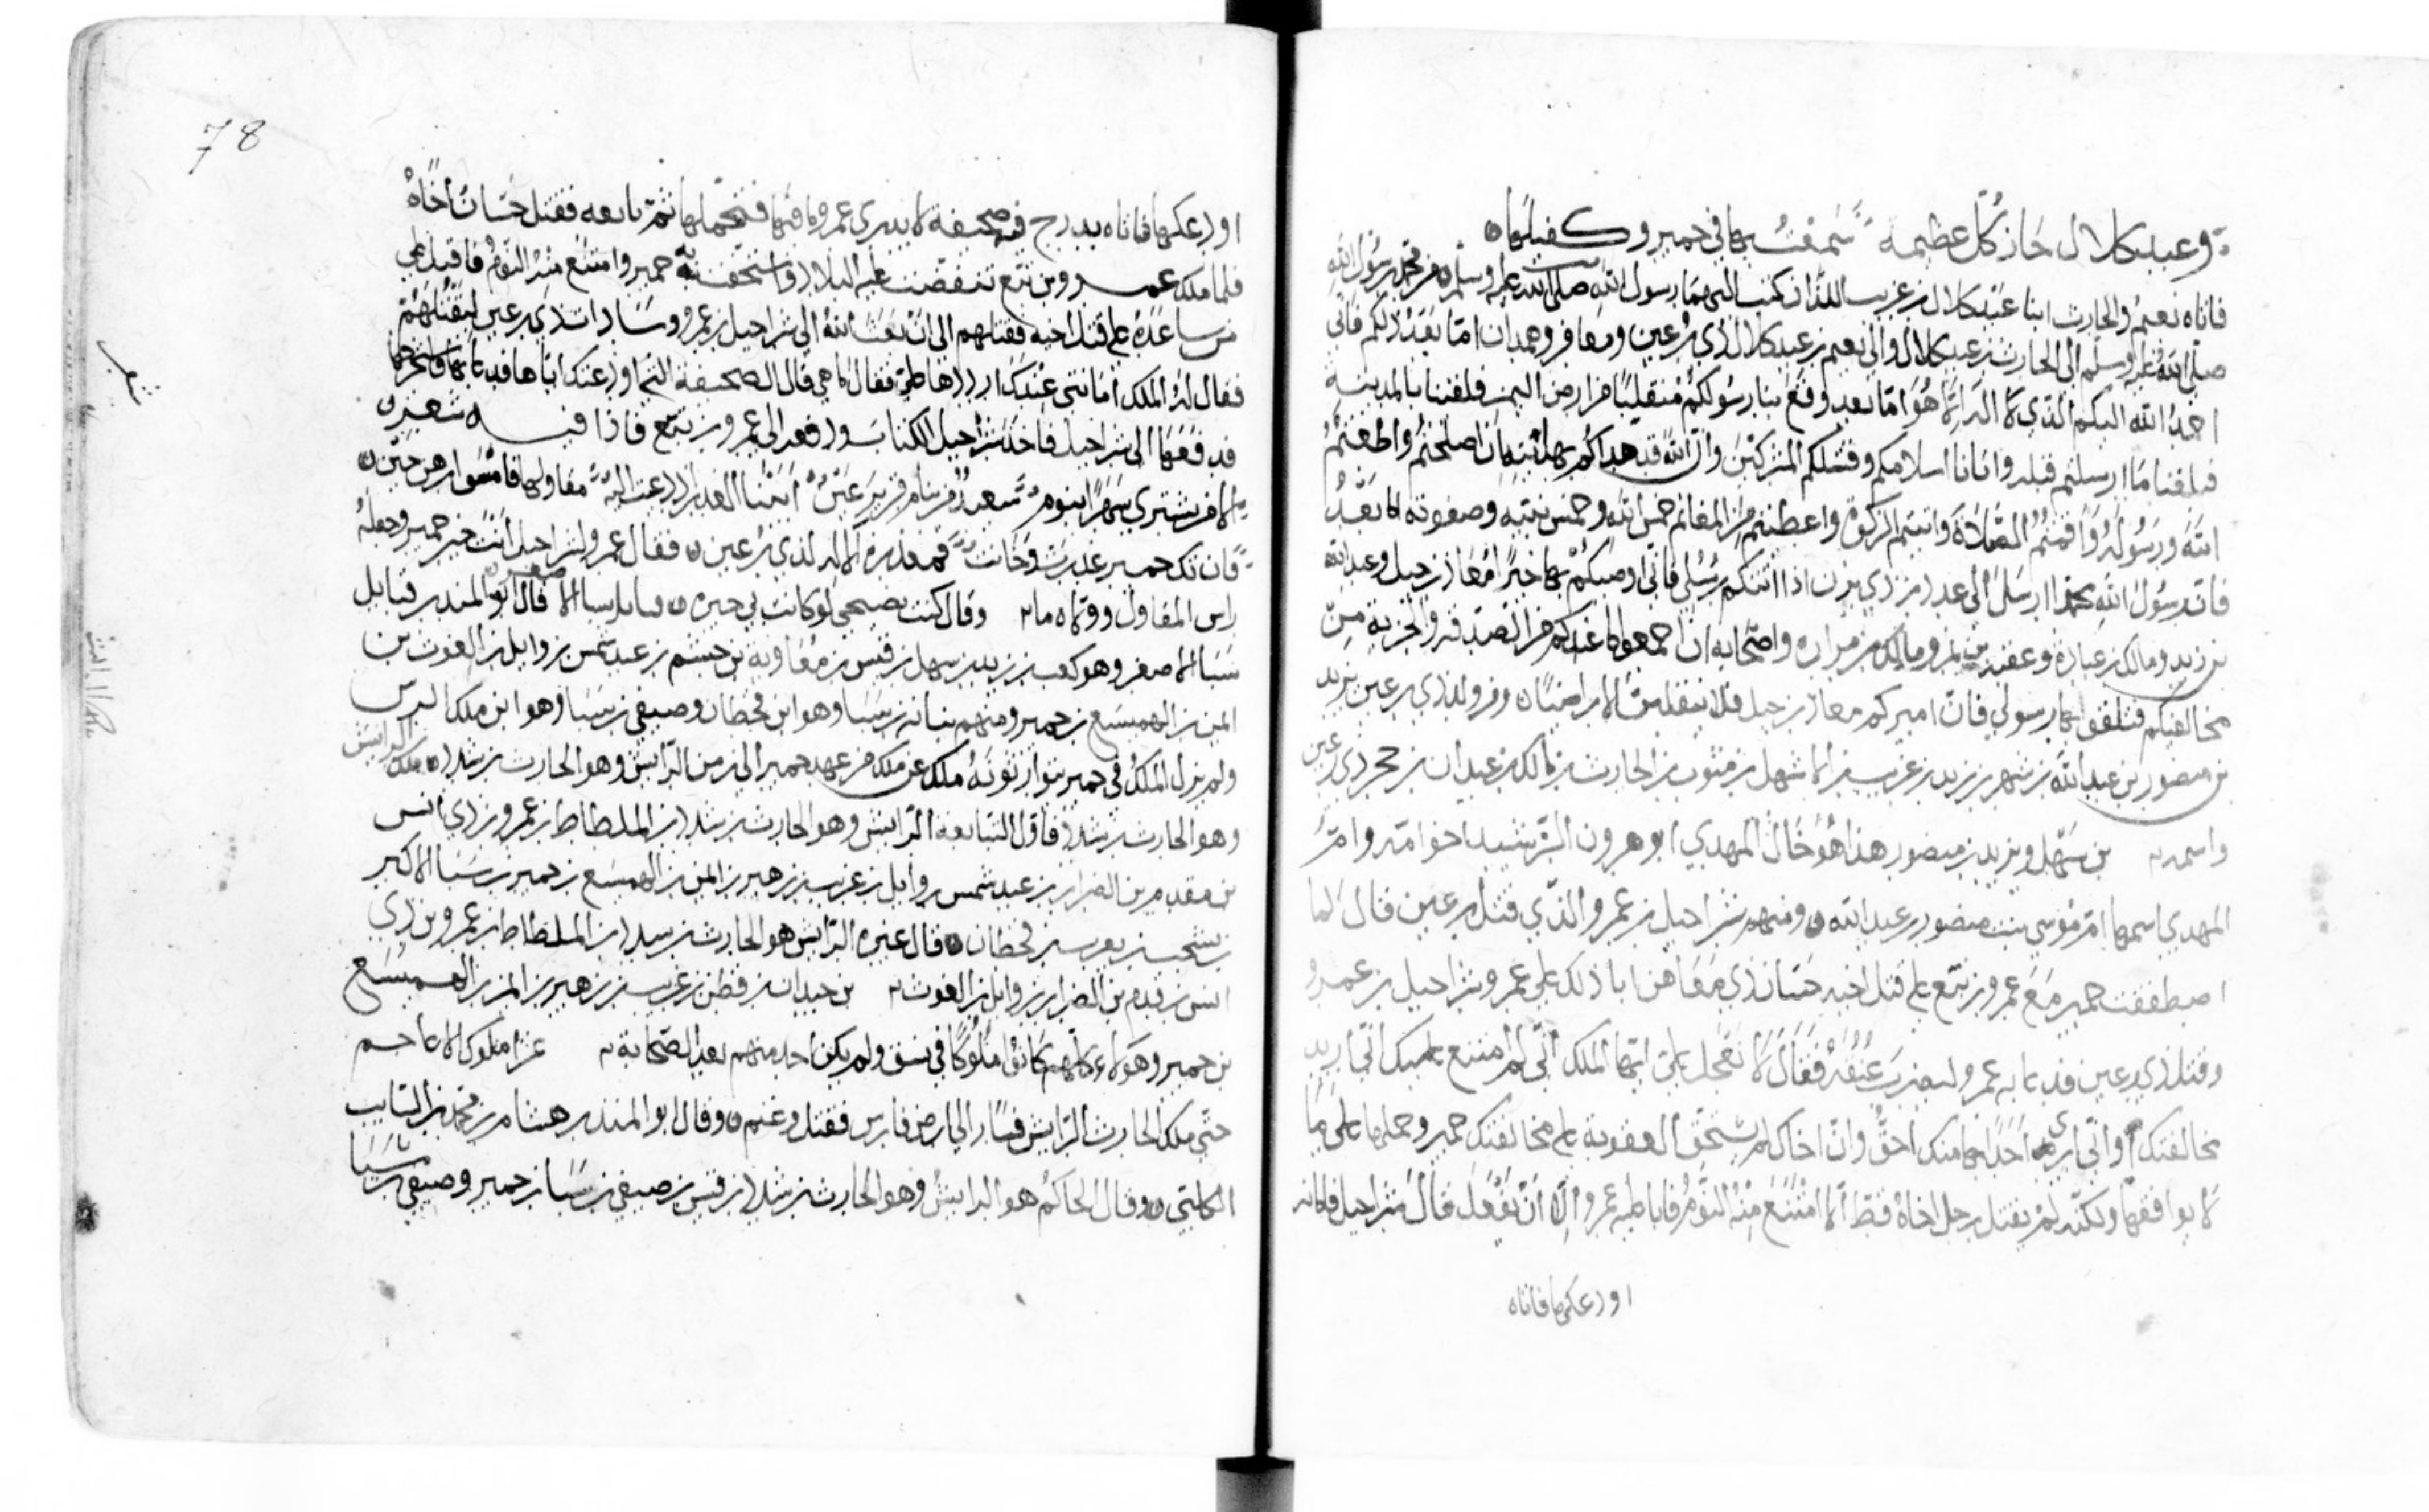 وعبد كلال حاز كل عظيمة سمعت بها في حمير وكفيلها
فاتاه نعيم والحارث ابنا عبد كلال بن عريب اللذان كتب اليهما رسول الله صلى الله عليه وسلم من محمد رسول الله
صلى الله عليه وسلم الى الحارث بن عبد كلال والى نعيم بن عبد كلال ذي رعين ومعافر وهمدان اما بعد ذلكم فاني
احمد الله اليكم الذي لا اله الا هو اما بعد وقع بنا رسولكم منقلبنا من ارض اليمن فلقينا بالمدينة
فبلغنا ما ارسلتم قبله وانبانا اسلامكم وقتلكم المشركين وان الله قد هداكم بهدايته ان اصلحتم واطعتم
الله ورسوله واقمتم الصلاة واتيتم الزكوة واعطيتم من المغانم خمس الله وخمس نبيه وصفوته اما بعد
فان رسول الله محمدا ارسل الى ذي يزن اذا اتتكم رسلي فاني اوصيكم بها خيرا معاذ بن جبل وعبد الله
بن زيد ومالك بن عبادة وعقبة بن نمر ومالك بن مرارة واصحابه ان اجمعوا ما عندكم من الصدقة والجزية من
مخالفيكم فتلقوا بها رسولي فان اميركم معاذ بن جبل فلا ينقلبن الا راضيا ومن ولد ذي رعين يزيد
بن منصور بن عبد الله بن شهر بن يزيد بن عريب بن الاشهل بن مثوب بن الحارث بن مالك بن عبدان بن حجر ذي رعين
واسمه بن سهل ويزيد بن منصور هذا هو خال المهدي ابو هرون الرشيد اخو امه وام
المهدي اسمها ام موسى بنت منصور بن عبد الله ومنهم شراحيل بن عمرو الذي قتل رعين قال لما
اصطفقت حمير مع عمرو بن تبع على قتل اخيه حسان ذي معاهر ابا ذلك على عمرو شراحيل بن عمرو
وقتل ذي رعين فدعا به عمرو ليضرب عنقه فقال لا تعجل علي ايها الملك اني لم امتنع عليك اني اريد
مخالفتك واني ارى احدا بها منك احق وان اخاك لم يستحق العقوبة على مخالفتك حمير وحملها على ما
لا يوافقها ولكنه لم يقتل رجل اخاه قط الا امتنع منه النوم فابا عليه عمرو الا ان يفعل قال شراحيل فامانه
اودعكها فاتاه
78
اودعكها فاتاه بدرج فيه صحيفة لا يدري عمرو ما فيها فتحملها ثم تابعه فقتل حسان اخاه
فلما ملك عمرو بن تبع تنقضت عليه البلاد واستخفت به حمير وامتنع منه النوم فاقبل على
من ساعده على قتل اخيه فقتلهم الى ان بعث الله الى شراحيل بن عمرو ذي رعين ليقتلهم
فقال له الملك امانتي عندك ارددها علي فقال ما هي قال الصحيفة التي اودعتك اياها فدعا بها فاستخرجها
فدفعها الى شراحيل فاخذ شراحيل الكتاب ودفعه الى عمرو بن تبع فاذا فيه شعر
الا من يشتري سهرا بنوم سعيد من ينام قرير عين
فان تك حمير غدرت وخانت فمعذرة الاله لذي رعين فقال عمرو لشراحيل انت خير حمير وجعله
راس المقاول وقال كنت نصيحي لو كانت بي خيرة قبايل سبا الاصغر قال ابو المنذر قبايل
سبا الاصغر وهو كعب بن زيد بن سهل بن قيس بن معاوية بن جشم بن عبد شمس بن وايل بن الغوث بن
ايمن بن الهميسع بن حمير ومنهم بنانة بن سبا وهو ابن قحطان وصيفي بن سبا وهو ابن ملك
ولم يزل الملك في حمير يتوارثونه ملك عن ملك من عهد حمير الى زمن الرايش وهو الحارث بن شدد ملك الرايش
وهو الحارث بن شدد فاول التبابعة الرايش وهو الحارث بن شدد بن الملطاط بن عمرو بن ذي انس
بن مقدم بن الضرار بن عبد شمس بن وايل بن عريب بن زهير بن ايمن بن الهميسع بن حمير بن سبا الاكبر
بن يشجب بن يعرب بن قحطان وقال غيره الرايش هو الحارث بن شدد بن الملطاط بن عمرو بن ذي
انس بن قدم بن الضرار بن وايل بن الغوث بن جيدان بن قطن بن عريب بن زهير بن ايمن بن الهميسع
بن حمير وهولاء كلهم كانوا ملوكا في نسق ولم يكن احد منهم غزا ملوك الاعاجم
حتى ملك الحارث الرايش فسار الى ارض فارس فقتل وغنم وقال ابو المنذر هشام بن محمد بن السايب
الكلبي وقال الحاكم هو الرايش وهو الحارث بن شدد بن قيس بن صيفي بن سبا بن حمير وصيفي بن سبا
شعر